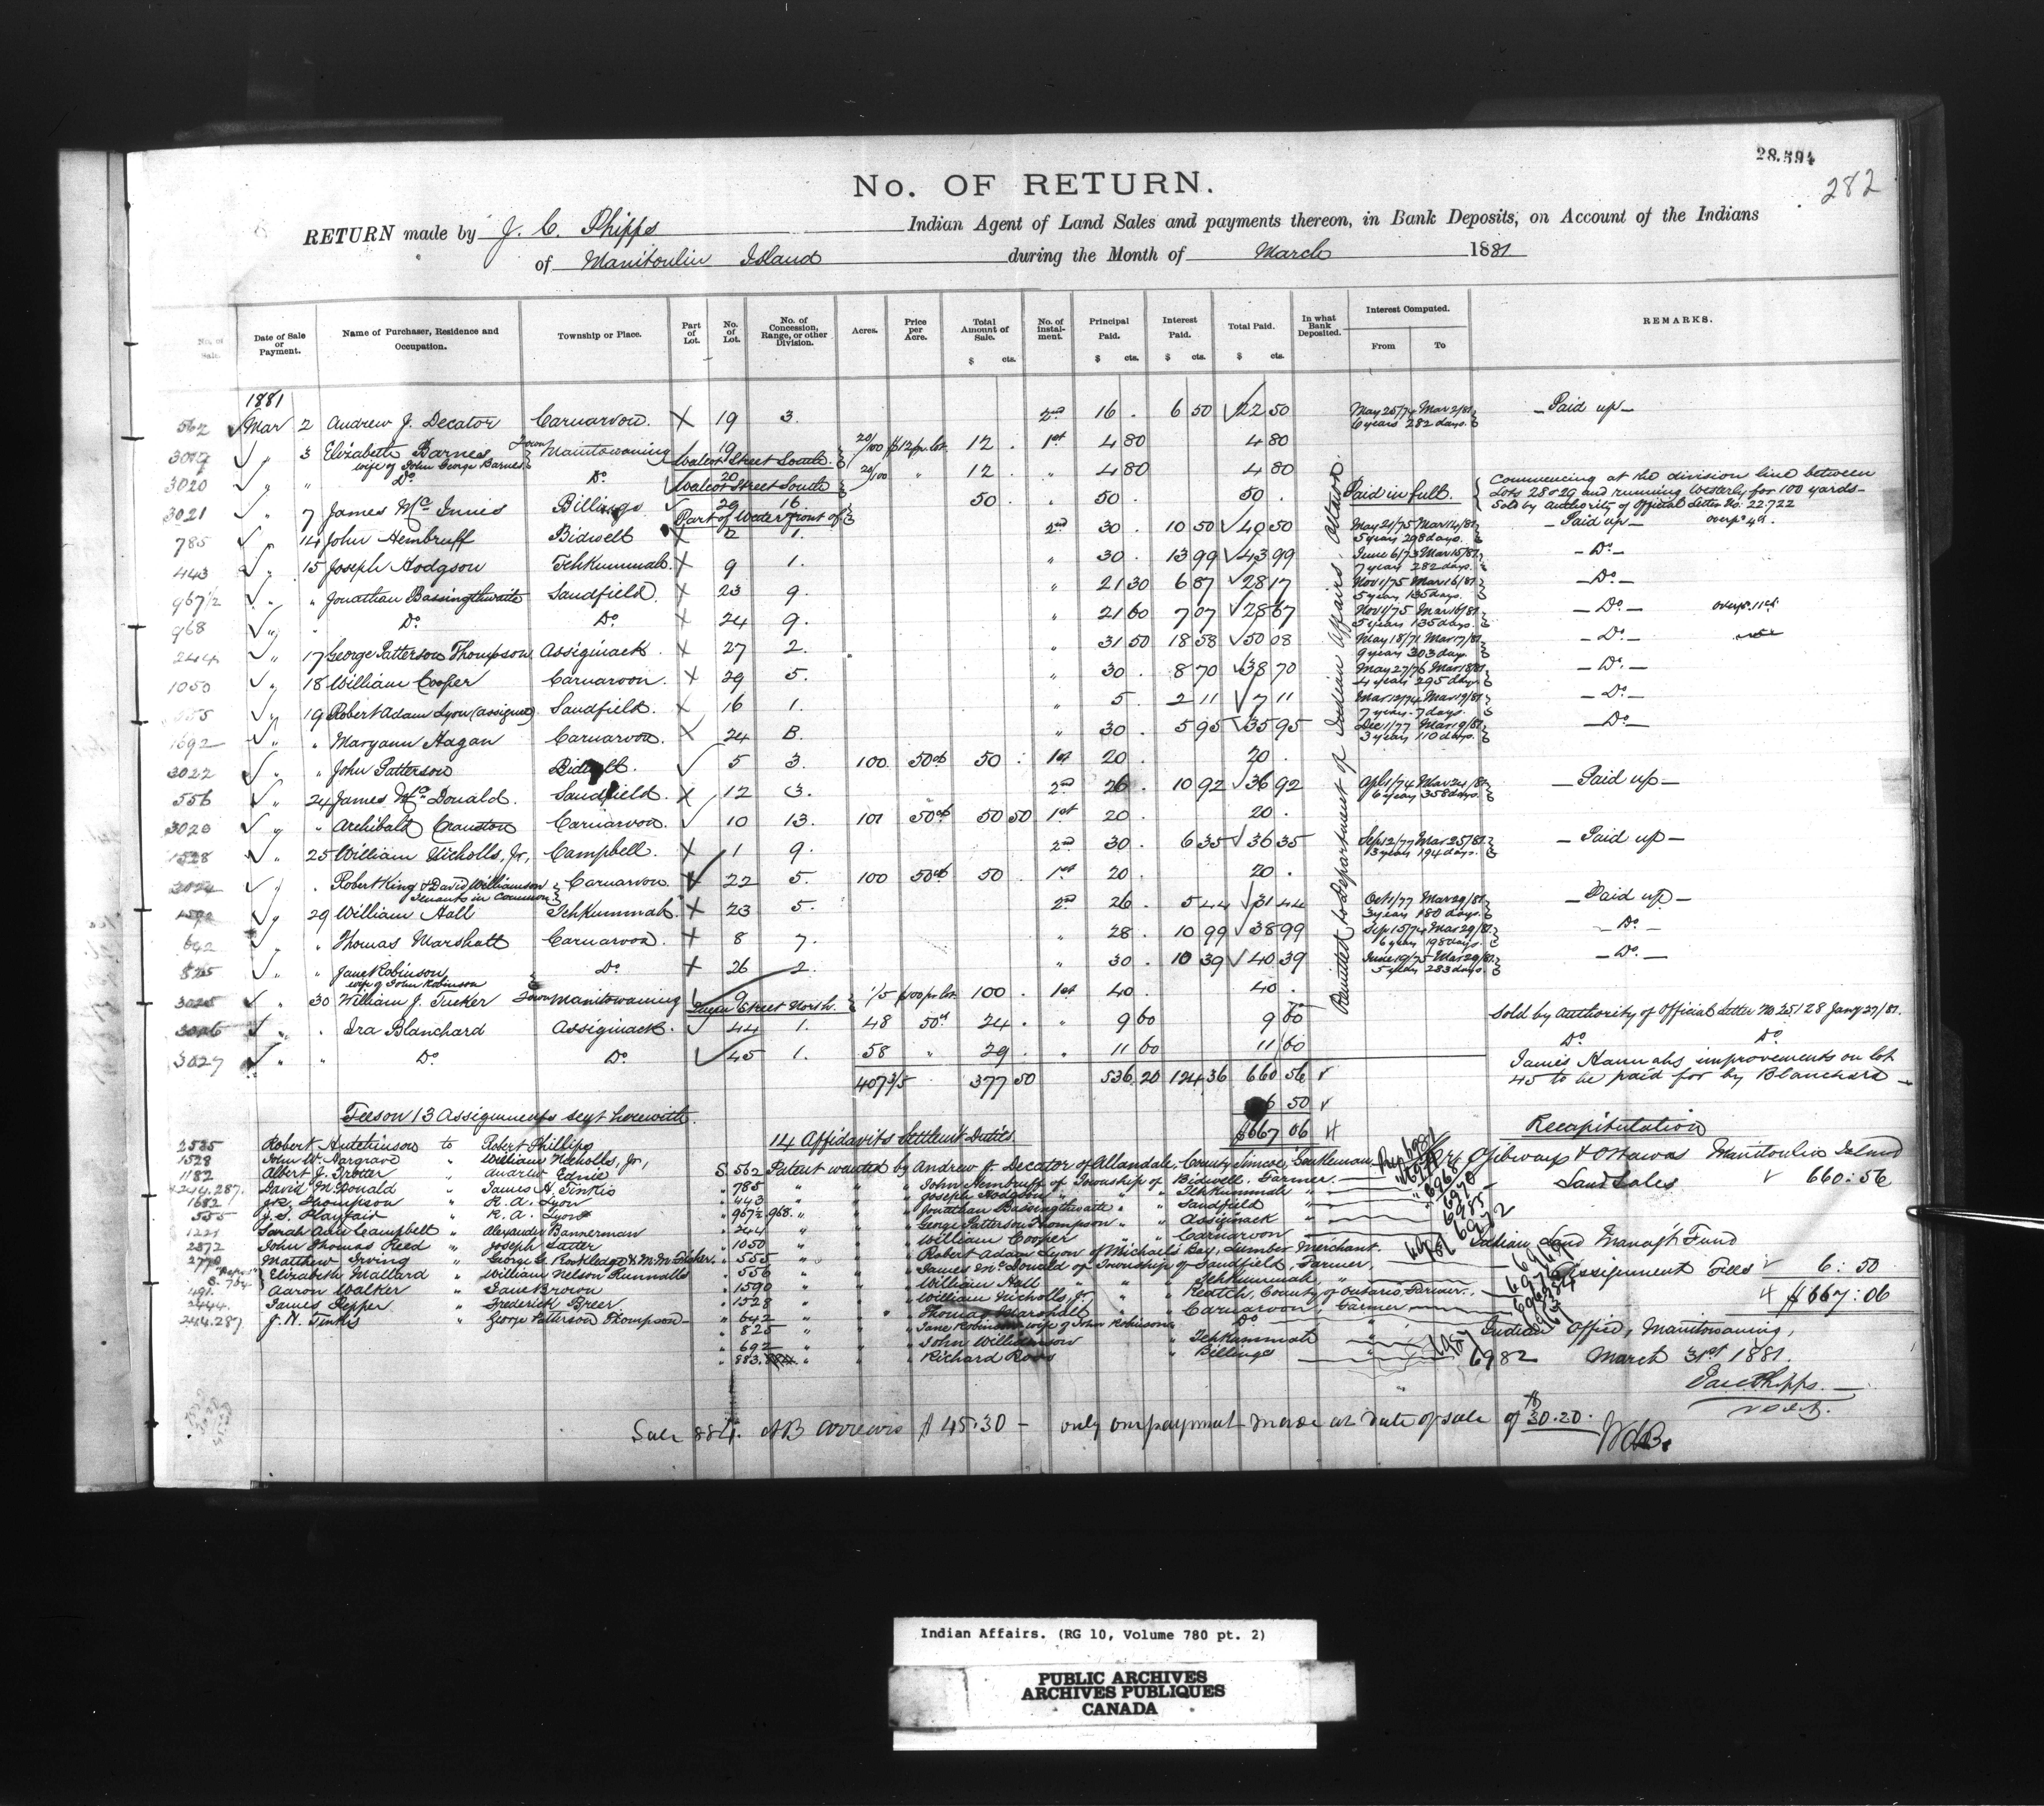 28.594
282
No. OF RETURN.
RETURN made by J. C. Phipps Indian Agent of Land Sales and payments thereon, in Bank Deposits, on Account of the Indians
of Manitoulin Island during the Month of March 1881
No. of Sale. Date of Sale or Payment. Name of Purchaser, Residence and Occupation. Township or Place. Part of Lot. No. of Lot. No. of Concession, Range, or other Division. Acres. Price per Acre. Total Amount of Sale. $ cts. No. of Instalment. Principal Paid. $ cts. Interest Paid. $ cts. Total Paid. $ cts. In what Bank Deposited. Interest Computed. From To REMARKS.
1881
562 Mar 2 Andrew J. Decator Carnarvon. X 19 3. 2nd 16 . 6 50 22 50 May 25/74 Mar 2/81 6 years 282 days. - Paid up -
3019 " 3 Elizabeth Barnes wife of John George Barnes Town Manitowaning 19 Walcot Street South. 20/100 $12 pr. lot 12 . 1st 4 80 4 80
3020 " " Do Do 20 Walcot Street South 20/100 " 12 . " 4 80 4 80
3021 " 7 James McInnis Billings 29 16 Part of Water front of 50 . " 50 . 50 . Paid in full. Commencing at the division line between
Lots 28 & 29 and running Westerly for 100 yards -
Sold by Authority of Official Letter No. 22.722
785 " 14 John Hembruff Bidwell X 2 1. 2nd 30 . 10 50 40 50 May 21/75 Mar 14/81 5 years 298 days. - Paid up - overpd 4ct.
443 " 15 Joseph Hodgson Tehkummah. X 9 1. " 30 . 13 99 43 99 June 6/73 Mar 15/81 7 years 282 days. - Do -
967 1/2 " " Jonathan Bassingthwaite Sandfield. X 23 9. " 21 30 6 87 28 17 Nov 1/75 Mar 16/81 5 years 135 days. - Do -
968 " " Do Do X 24 9. " 21 60 7 07 28 67 Nov 1/75 Mar 16/81 5 years 135 days. - Do - overpd. 11ct.
244 " 17 George Patterson Thompson Assiginack. X 27 2. " 31 50 18 58 50 08 May 18/71 Mar 17/81 9 years 303 days - Do -
1050 " 18 William Cooper Carnarvon. X 29 5. " 30 . 8 70 38 70 May 27/76 Mar 18/81 4 years 295 days - Do -
555 " 19 Robert Adam Lyon (assignee) Sandfield. X 16 1. " 5 . 2 11 7 11 Mar 12/74 Mar 19/81 7 years 7 days. - Do -
1692 " " Maryann Hagan Carnarvon. X 24 B. " 30 . 5 95 35 95 Dec 1/77 Mar 19/81 3 years 110 days. - Do -
3022 " " John Patterson Bidwell. 5 3. 100 50ct 50 . 1st 20 . 20 .
556 " 24 James McDonald. Sandfield. X 12 3. 2nd 26 . 10 92 36 92 Apl 1/74 Mar 24/81 6 years 358 days. - Paid up -
3023 " " Archibald Cranston Carnarvon. 10 13. 101 50ct 50 50 1st 20 . 20 .
1528 " 25 William Nicholls, Jr, Campbell. X 1 9. 2nd 30 . 6 35 36 35 Sep 12/77 Mar 25/81 3 years 194 days. - Paid up -
3024 " . Robert King & David Williamson Tenants in Common Carnarvon. 22 5. 100 50ct 50 . 1st 20 . 20 .
1590 " 29 William Hall Tehkummah X 23 5. 2nd 26 . 5 44 31 44 Oct 1/77 Mar 29/81 3 years 180 days. - Paid up -
642 " " Thomas Marshall Carnarvon. X 8 7. " 28 . 10 99 38 99 Sep 15/74 Mar 29/81 6 years 198 days. - Do -
825 " " Jane Robinson, wife of John Robinson Do X 26 2. " 30 . 10 39 40 39 June 19/75 Mar 29/81 5 years 283 days - Do -
3025 " 30 William J. Tucker Town Manitowaning 9 Queen Street North. 1/5 $100 pr. lot. 100 . 1st 40 . 40 .
3026 " . Ira Blanchard Assiginack. 44 1. 48 50ct 24 . " 9 60 9 60 Sold by Authority of Official Letter No 25128 Jany 27/81.
3027 " " Do Do 45 1. 58 " 29 . " 11 60 11 60 Do Do
James Hannahs improvements on lot
45 to be paid for by Blanchard -
Remitted to Department of Indian Affairs. Ottawa.
407 3/5 377 50 536 20 124 36 660 56
Fees on 13 Assignments sent herewith. 6 50
14 Affidavits Settlem't Duties. $667 06
2535 Robert Hutchinson to Robert Phillips
1528 John W. Hargrave " William Nicholls, Jr,
1182 Albert J. Trotter " Andrew Eadie
244.287. David McDonald " James H. Tinkis
1682 J.R. Thompson " R. A. Lyon
555 J. S. Playfair " R. A. Lyon
1221 Sarah Ann Campbell " Alexander Bannerman
2572 John Thomas Reed " Joseph Sutter
2770 Matthew Irving " George G. Rookledge & M. M. Tucker.
S. 704 Elizabeth Mallard " William Nelson Runnalls
491. Aaron Walker " Jane Brown
2444. James Pepper " Frederick Breer
244.287 J. H. Tinkis " George Patterson Thompson
S. 562 Patent wanted by Andrew J. Decator of Allandale, County Simcoe, Gentleman,
" 785 " " " John Hembruff of Township of Bidwell, Farmer.
" 443 " " " Joseph Hodgson " " Tehkummah "
" 967 1/2 .968. " " " Jonathan Bassingthwaite " " Sandfield "
" 244 " " " George Patterson Thompson " " Assiginack "
" 1050 " " " William Cooper " " Carnarvon "
" 555 " " " Robert Adam Lyon of Michaels Bay, Lumber Merchant.
" 556 " " " James McDonald of Township of Sandfield, Farmer,
" 1590 " " " William Hall " " Tehkummah, "
" 1528 " " " William Nicholls, Jr, " " Reatch, County of Ontario, Farmer.
" 642 " " " Thomas Marshall " " Carnarvon, Farmer,
" 825 " " " Jane Robinson wife of John Robinson Do
" 692 " " " John Williamson " Tehkummah "
" 883. " " " Richard Ross " Billings "
6982
Recapitulation
Ojibways & Ottawas Manitoulin Island
Land Sales 660:56
Indian Land Manag't Fund
Assignment Fees 6:50
$667:06
Indian Office, Manitowaning,
March 31st 1881.
Jas. C. Phipps.
Sale 884. AB arrears $45.30 - only one payment made at date of sale of $30.20.
Indian Affairs. (RG 10, Volume 780 pt. 2)
PUBLIC ARCHIVES
ARCHIVES PUBLIQUES
CANADA